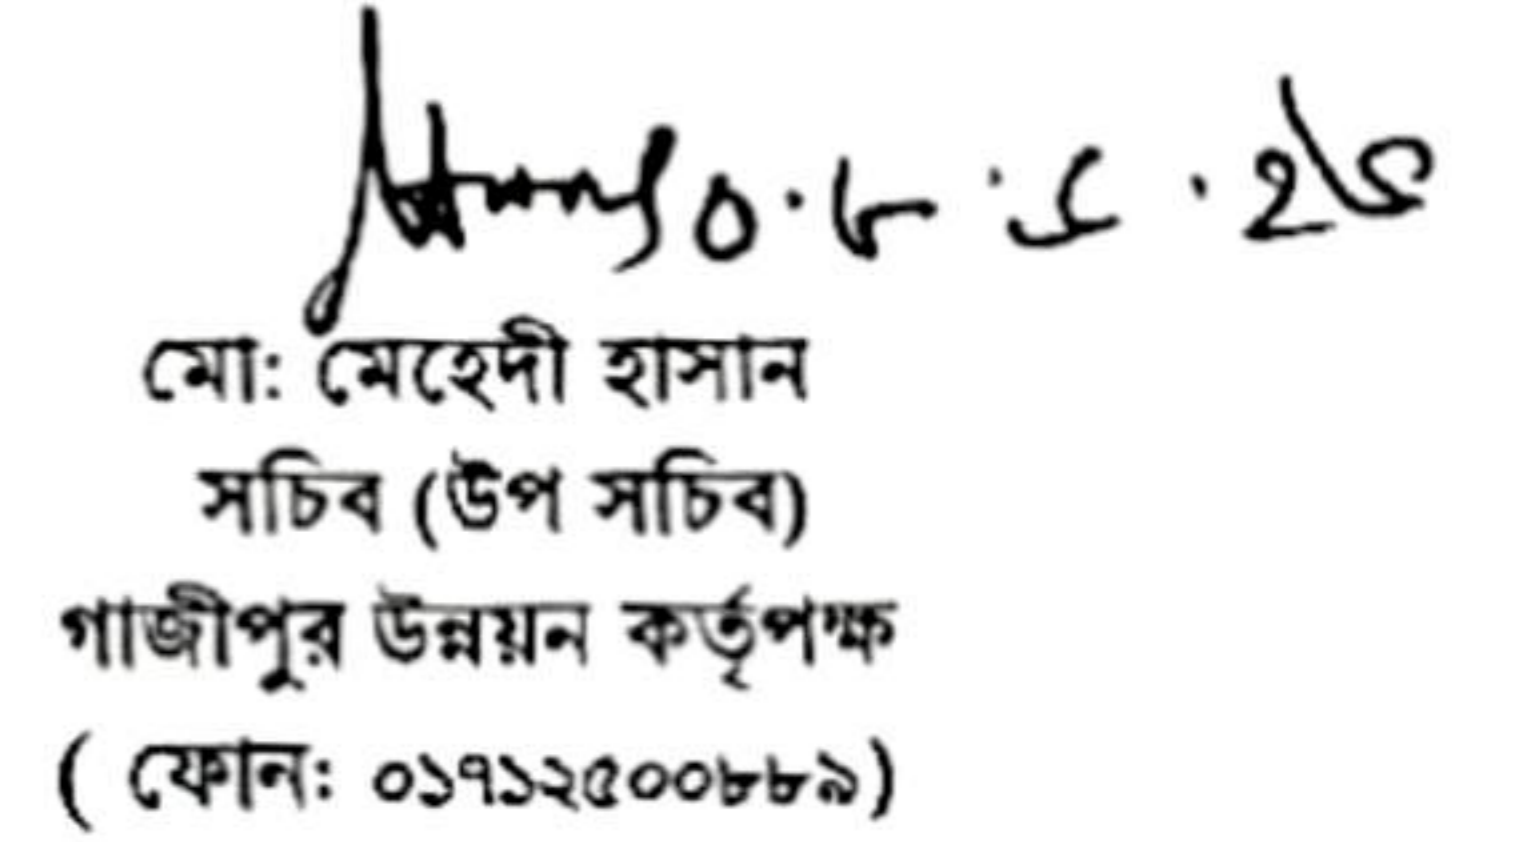 মো: মেহেদী হাসান
সচিব (উপ সচিব)
গাজীপুর উন্নয়ন কর্তৃপক্ষ
( ফোন: ০১৭১২৫০০৮৮৯)